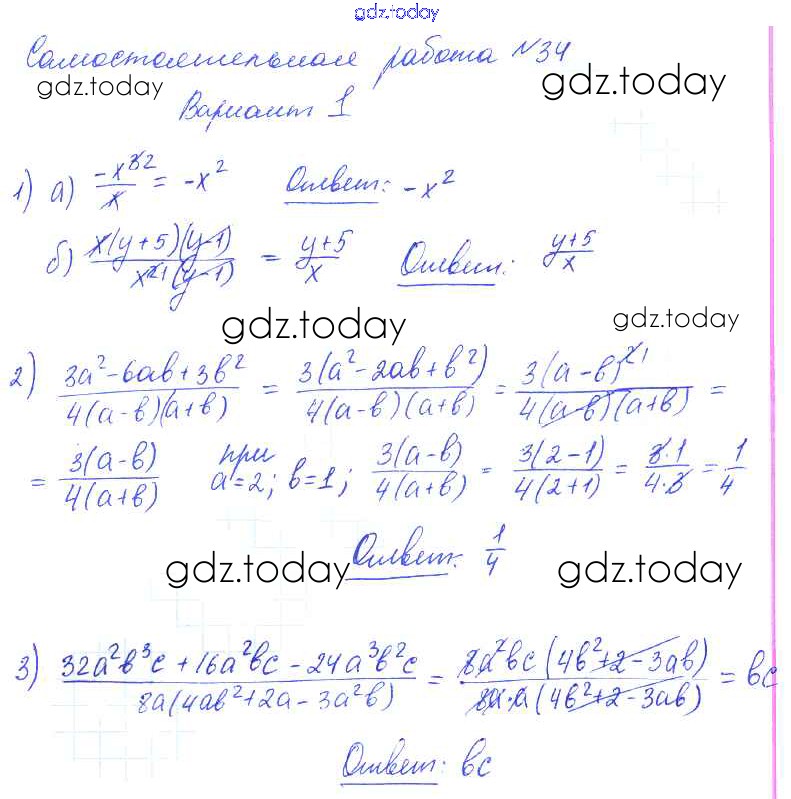 gdz.today
Самостоятельная работа №34
gdz.today gdz.today
Вариант 1
1) а) -x^3 2 / x = -x^2 Ответ: -x^2
б) x(y+5)(y-1) / x^2 1 (y-1) = y+5 / x Ответ: y+5 / x
gdz.today gdz.today
2) 3a^2-6ab+3b^2 / 4(a-b)(a+b) = 3(a^2-2ab+b^2) / 4(a-b)(a+b) = 3(a-b)^2 1 / 4(a-b)(a+b) =
= 3(a-b) / 4(a+b) при a=2; b=1; 3(a-b) / 4(a+b) = 3(2-1) / 4(2+1) = 3·1 / 4·3 = 1/4
Ответ: 1/4
gdz.today gdz.today
3) 32a^2b^3c+16a^2bc-24a^3b^2c / 8a(4ab^2+2a-3a^2b) = 8a^2bc(4b^2+2-3ab) / 8a·a(4b^2+2-3ab) = bc
Ответ: bc